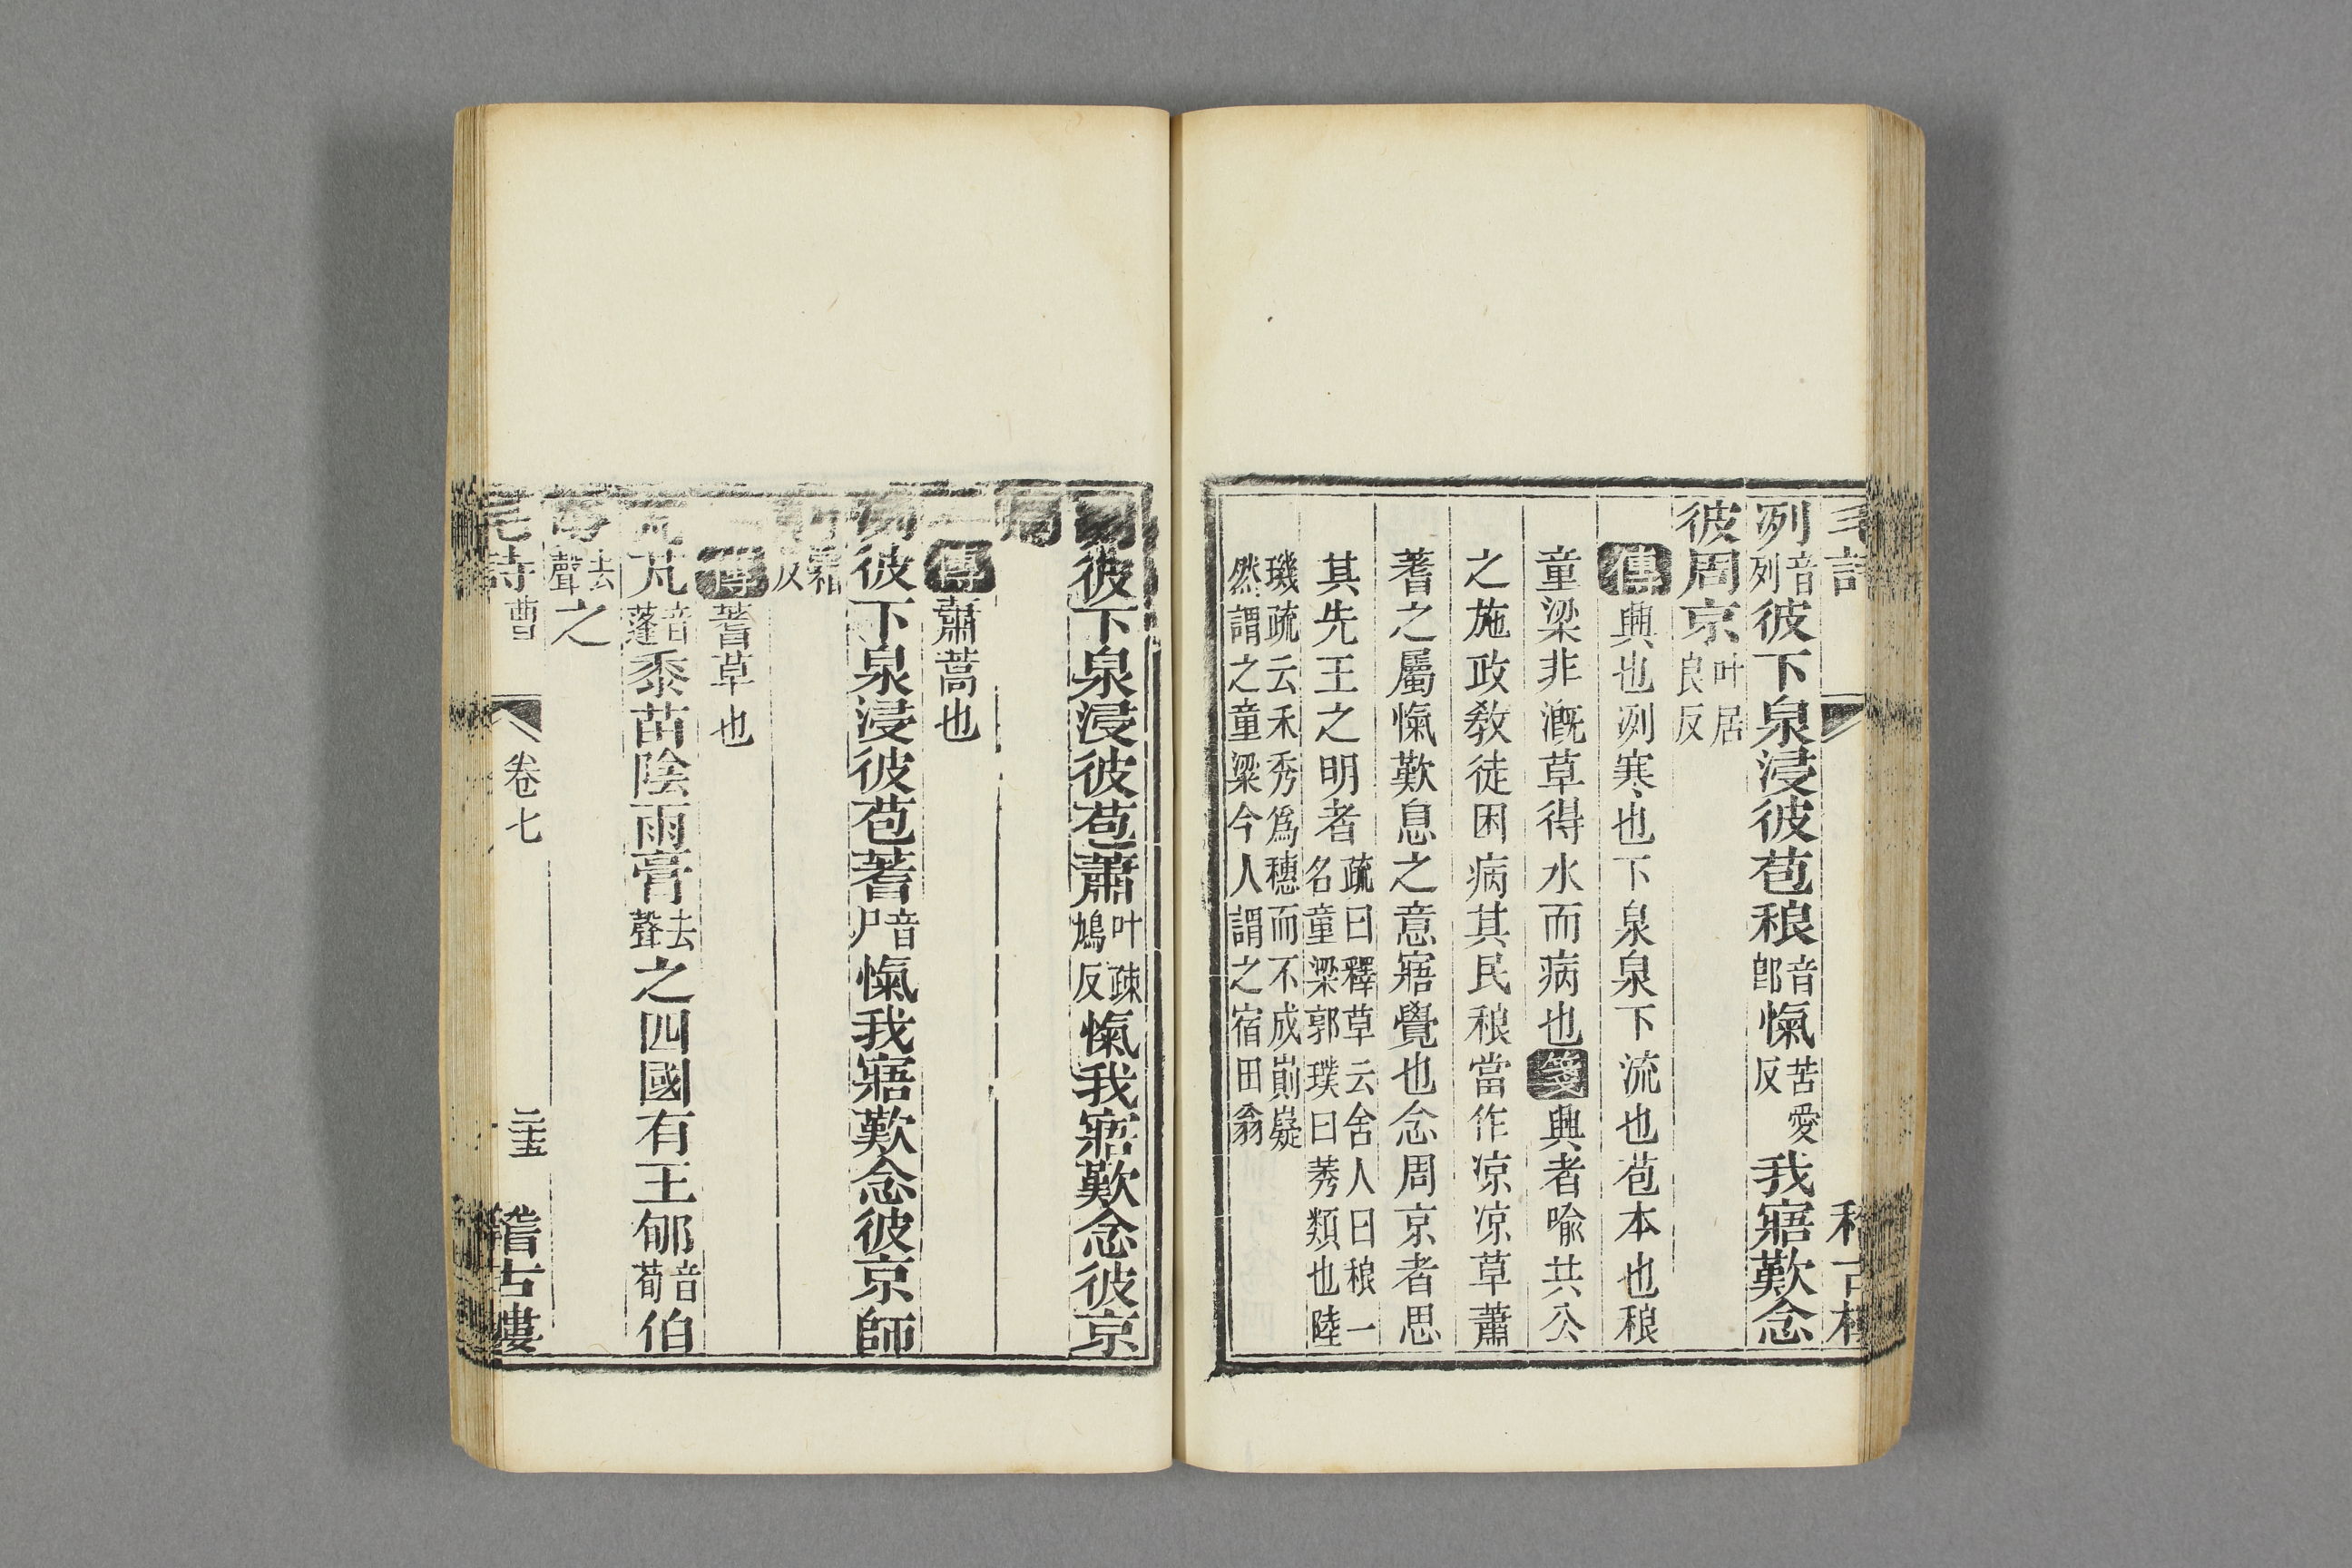 毛詩
稽古樓
冽音列彼下泉浸彼苞稂音郎愾苦愛反我寤歎念
彼周京叶居良反
傳興也冽寒也下泉泉下流也苞本也稂
童梁非漑草得水而病也箋興者喻共公
之施政教徒困病其民稂當作凉凉草蕭
蓍之屬愾歎息之意寤覺也念周京者思
其先王之明者疏曰釋草云舍人曰稂一名童梁郭璞曰莠類也陸
璣疏云禾秀爲穗而不成崱嶷然謂之童粱今人謂之宿田翁
彼下泉浸彼苞蕭叶疎鳩反愾我寤歎念彼京
周
傳蕭蒿也
冽彼下泉浸彼苞蓍音尸愾我寤歎念彼京師
霜反
傳蓍草也
芃音蓬黍苗陰雨膏去聲之四國有王郇音荀伯
去聲之
毛詩 曹 卷七 三十五 稽古樓